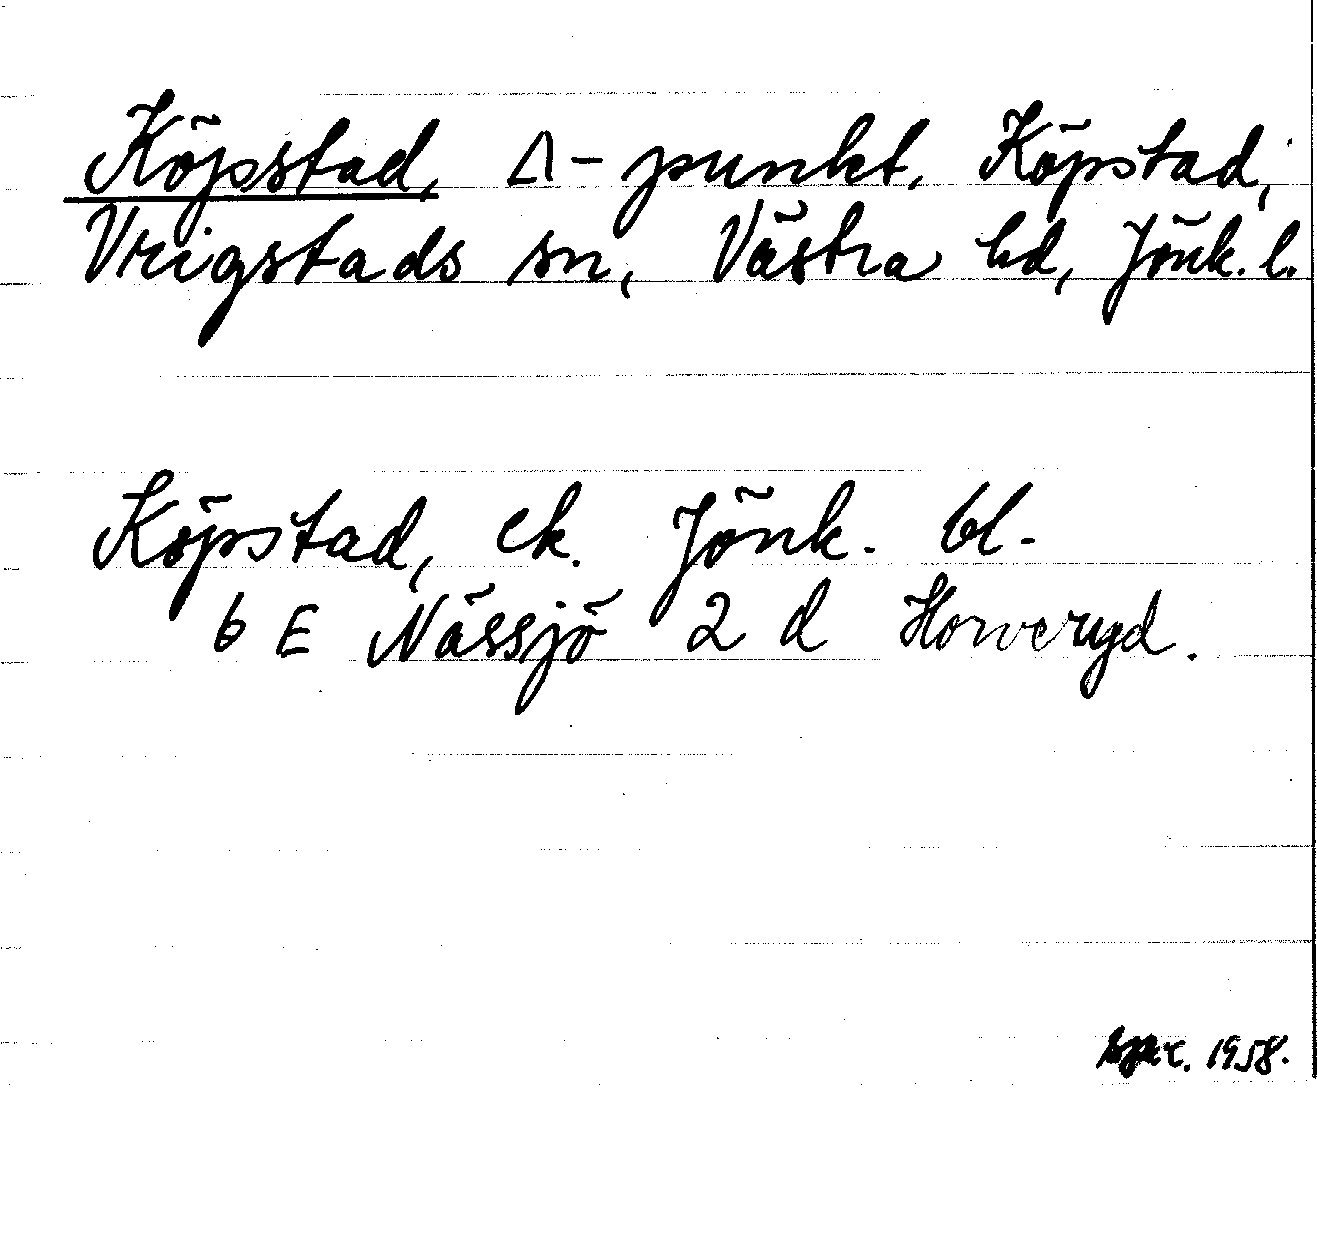 Köpstad, Δ-punkt. Köpstad,
Vrigstads sn, Västra hd, Jönk. l.
Köpstad, ek. Jönk. bl.
6 E Nässjö 2 d Horveryd.
1958.